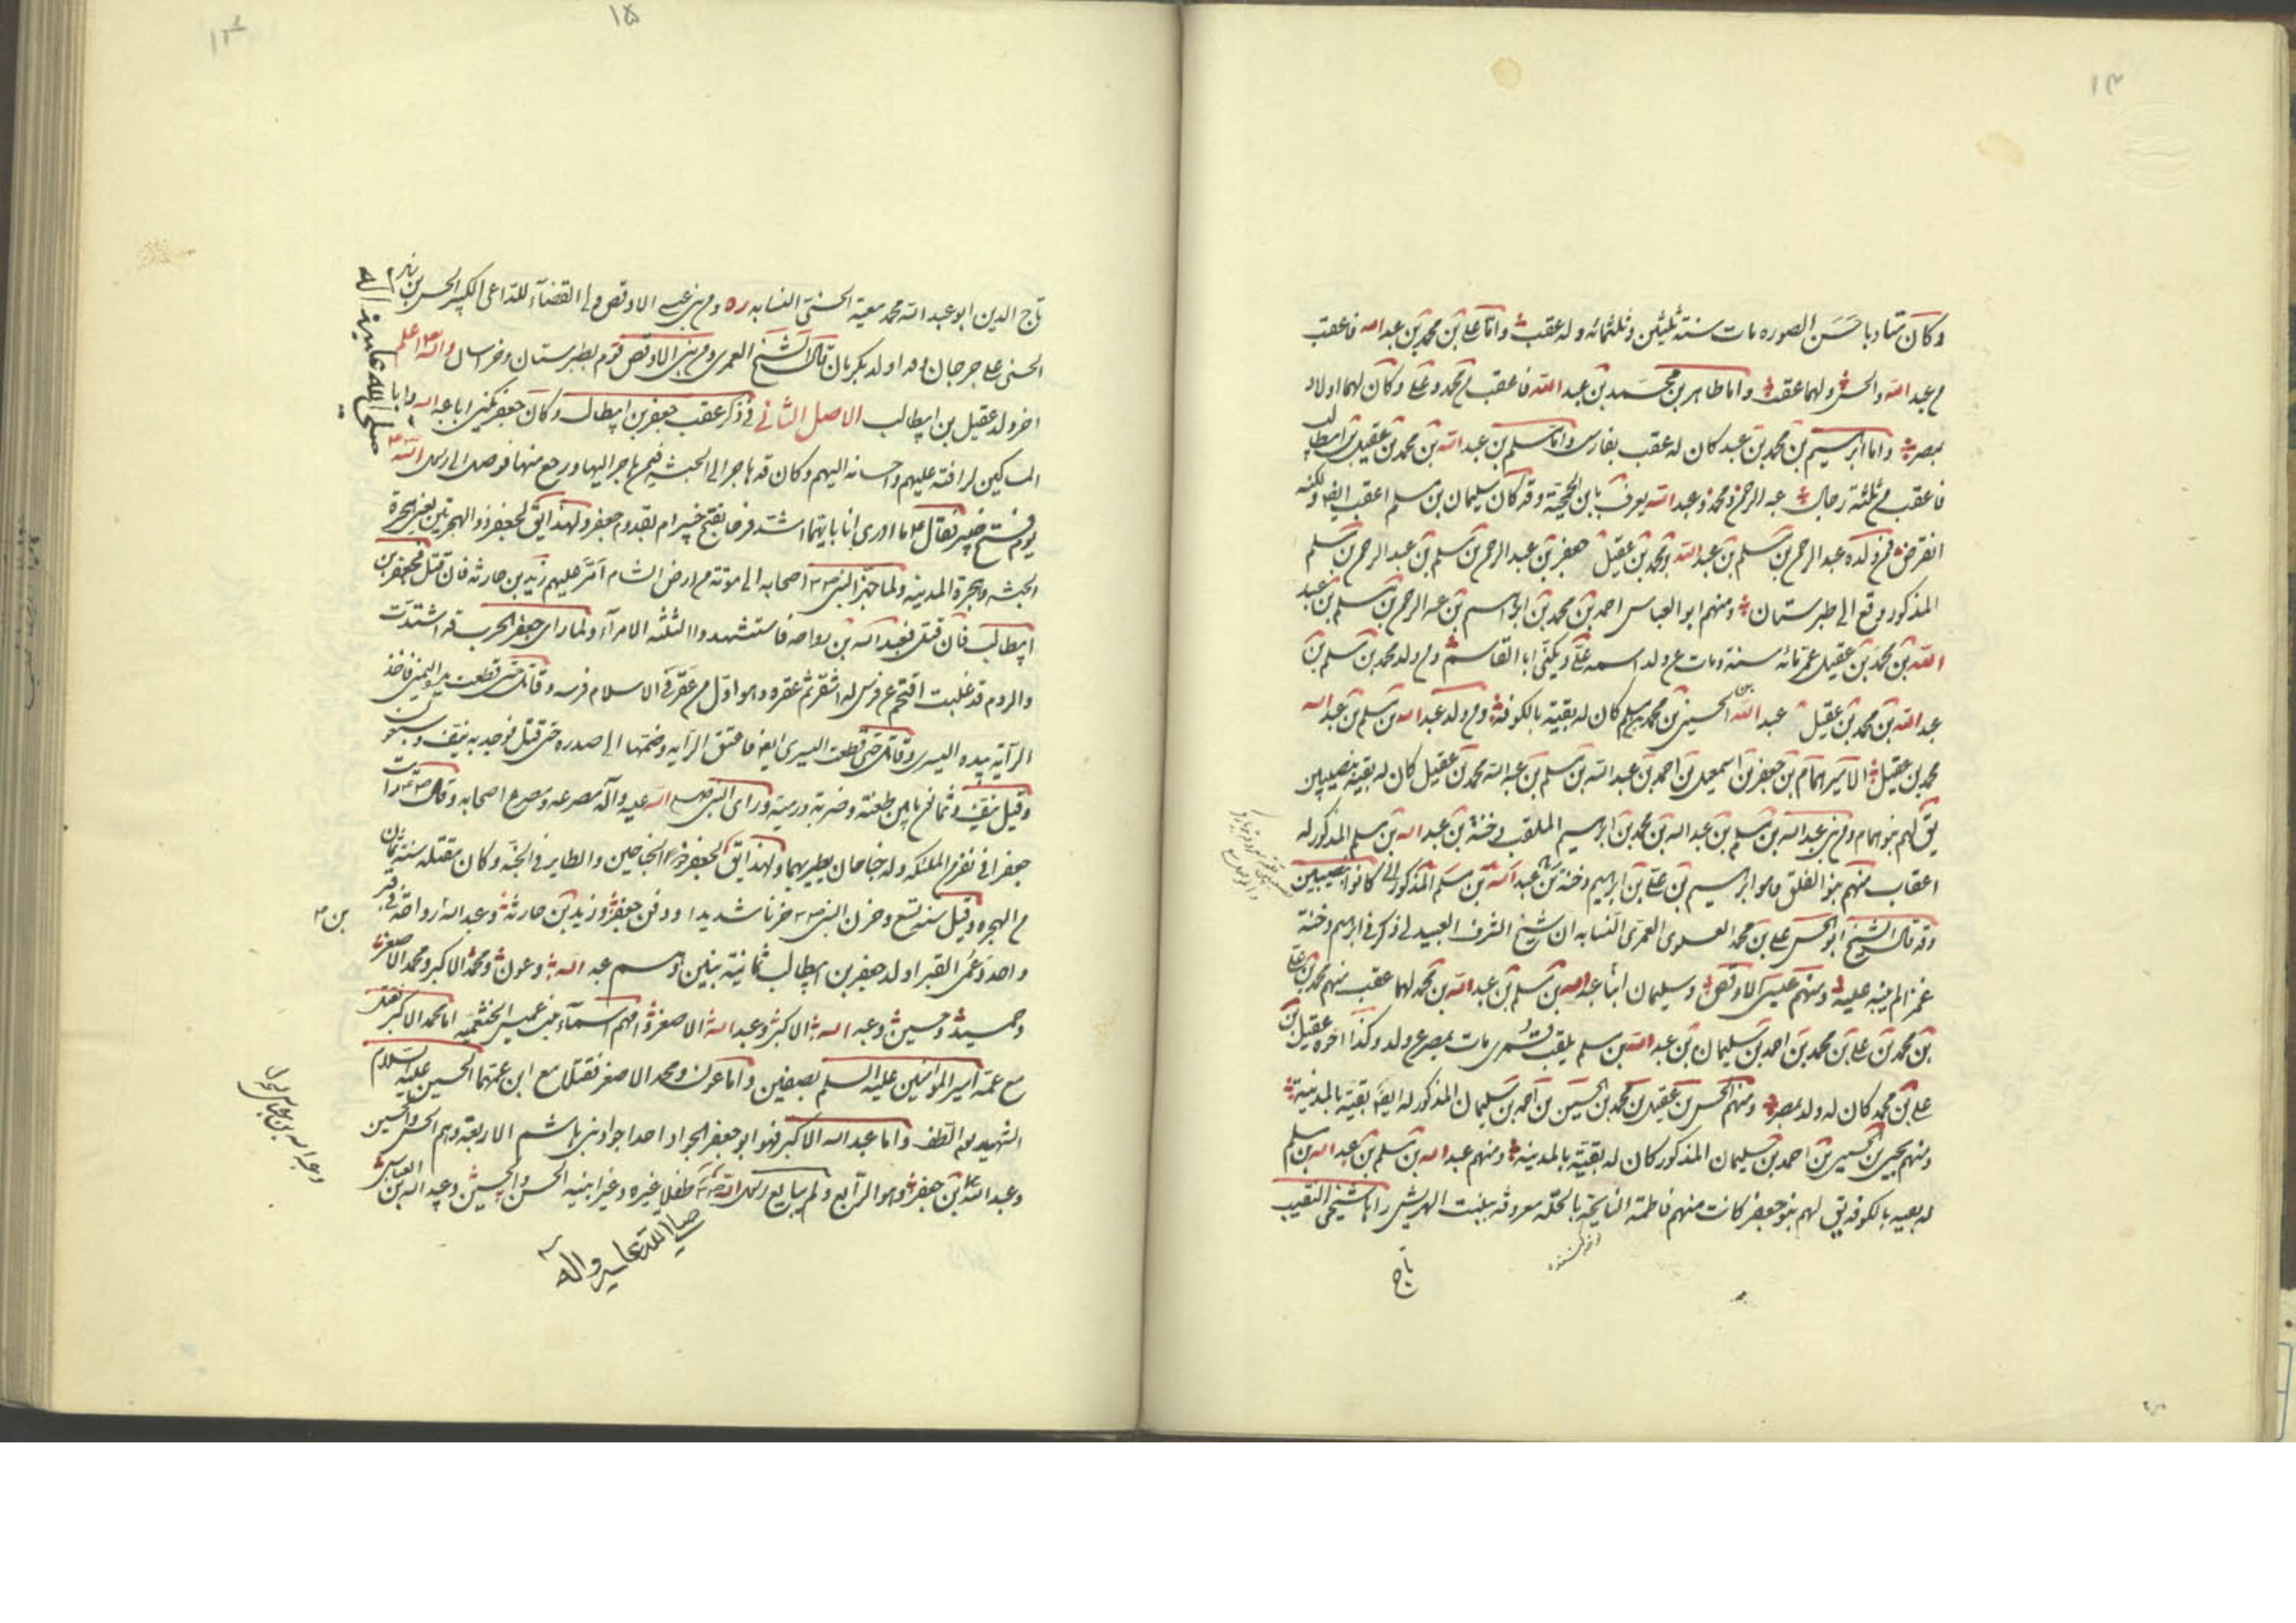 ١٣
وكان متأدبا حسن الصوره مات سنة ثلثين وثلثمائه وله عقب واما علي بن محمد بن عبد الله فاعقب
من عبد الله والحسن ولهما عقب واما طاهر بن محمد بن عبد الله فاعقب من محمد وعلي وكان لهما اولاد
بمصر واما ابرهيم بن محمد بن عبد كان له عقب بفارس واما مسلم بن عبد الله بن محمد بن عقيل بن ابيطالب
فاعقب من ثلثة رجال عبد الرحمن ومحمد وعبد الله يعرف بابن الجمحية وقد كان سليمان بن مسلم اعقب ايضا ولكنه
انقرض فمن ولده عبد الرحمن بن مسلم بن عبد الله بن محمد بن عقيل جعفر بن عبد الرحمن بن مسلم بن عبد الرحمن بن مسلم
المذكور وقع الى طبرستان ومنهم ابو العباس احمد بن محمد بن ابراهيم بن عبد الرحمن بن مسلم بن عبد
الله بن محمد بن عقيل عمر مائه سنة ومات عن ولد اسمه علي ويكنى ابا القاسم ومن ولد محمد بن مسلم بن
عبد الله بن محمد بن عقيل عبد الله بن الحسين بن محمد بن مسلم كان له بقية بالكوفة ومن ولد عبد الله بن مسلم بن عبد الله
محمد بن عقيل الامير همام بن جعفر بن اسمعيل بن احمد بن عبد الله بن مسلم بن عبد الله محمد بن عقيل كان له بقية بنصيبين
يق لهم بنو همام ومن بني عبد الله بن مسلم بن عبد الله بن محمد بن ابرهيم الملقب دخنة بن عبد الله بن مسلم المذكور له
اعقاب منهم بنو الفلق وهو ابرهيم بن علي بن ابرهيم دخنة بن عبد الله بن مسلم المذكور كانوا بنصيبين
وقد قال الشيخ ابو الحسن علي بن محمد العلوى العمرى النسابه ان شيخ الشرف العبيدلى ذكر في ابرهيم دخنة
غمز البينه عليه ومنهم عيسى الاوقص وسليمان ابنا عبد الله بن مسلم بن عبد الله بن محمد لهما عقب منهم محمد بن علي
بن محمد بن علي بن محمد بن احمد بن سليمان بن عبد الله بن مسلم يلقب مات بمصر عن ولد وكذا اخوه عقيل بن
علي بن محمد كان له ولد بمصر ومنهم الحسن بن عقيل بن محمد بن الحسين بن احمد بن سليمان المذكور له ايضا بقية بالمدينة
ومنهم يحيى بن الحسين بن احمد بن سليمان المذكور كان له بقية بالمدينة ومنهم عبد الله بن مسلم بن عبد الله بن مسلم
له بقيه بالكوفه يق لهم بنو جعفر كانت منهم فاطمة النايحة بالحلة معروفه ببنت الهريش راها شيخى النقيب
تاج
١٥
١٤
تاج الدين ابو عبد الله محمد معية الحسنى النسابه ره ومن بني عيسى الاوقص ولى القضاء للداعى الكبير الحسن بن زيد
الحسنى على جرجان وقد اولد بكرمان قال الشيخ العمرى ومن بني الاوقص قوم بطبرستان وخراسان والله اعلم
اخر ولد عقيل بن ابيطالب الاصل الثانى في ذكر عقب جعفر بن ابيطالب وكان جعفر يكنى ابا عبد الله وابا
المساكين لرافته عليهم واحسانه اليهم وكان قد هاجر الى الحبشة فيمن هاجر اليها ورجع منها فوصل الى رسول الله
يوم فتح خيبر فقال ما ادرى انا بايهما اشد فرحا بفتح خيبر ام بقدوم جعفر ولهذا يق لجعفر ذو الهجرتين يعنى هجرة
الحبشه وهجرة المدينه ولما جهز النبى اصحابه الى موتة من ارض الشام امر عليهم زيد بن حارثه فان قتل فجعفر بن
ابيطالب فان قتل فعبد الله بن رواحه فاستشهدوا الثلثه الامراء ولما راى جعفر الحرب قد اشتدت
والروم قد غلبت اقتحم عن فرس له اشقر ثم عقره وهو اول من عقر في الاسلام فرسه وقاتل حتى قطعت يده اليمنى فاخذ
الرآية بيده اليسرى وقاتل حتى قطعت اليسرى ايضا فاعتنق الرايه وضمها الى صدره حتى قتل فوجد به نيف وسبعون
وقيل نيف وثمانون ما بين طعنة وضربة ورمية وراى النبى صلى الله عليه وآله مصرعه ومصرع اصحابه وقال رايت
جعفرا في نفر من الملئكه وله جناحان يطير بهما ولهذا يق لجعفر ذو الجناحين والطاير في الجنه وكان مقتله سنة ثمان
من الهجره وقيل سنه تسع وحزن النبى حزنا شديدا ودفن جعفر وزيد بن حارثة وعبد الله رواحة في قبر
بن
واحد وعمى القبر اولد جعفر بن ابيطالب ثمانية بنين وهم عبد الله وعون ومحمد الاكبر ومحمد الاصغر
وحميد وحسين وعبد الله الاكبر وعبد الله الاصغر وامهم اسماء بنت عميس الخثعميه اما محمد الاكبر فقتل
مع عمه امير المؤمنين عليه السلم بصفين واما عون ومحمد الاصغر فقتلا مع ابن عمهما الحسين عليه السلام
الشهيد يوم الطف واما عبد الله الاكبر فهو ابو جعفر الجواد احد اجواد بنى هاشم الاربعة وهم الحسن والحسين
وعبد الله بن جعفر وهو الرابع ولم يبايع رسول الله طفلا غيره وغير ابنيه الحسن والحسين وعبد الله بن العباس
صلى الله عليه واله
صلى الله عليه واله